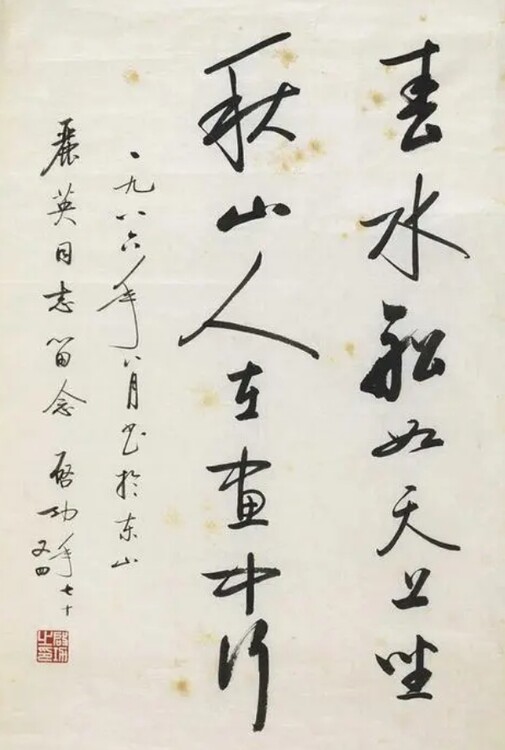 春水船如天上坐
秋山人在畫中行
一九八六年八月书於东山
麗英同志留念 啓功年七十
又四
啓功之印